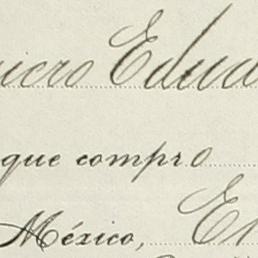 uicro Edua
que compro
México, En